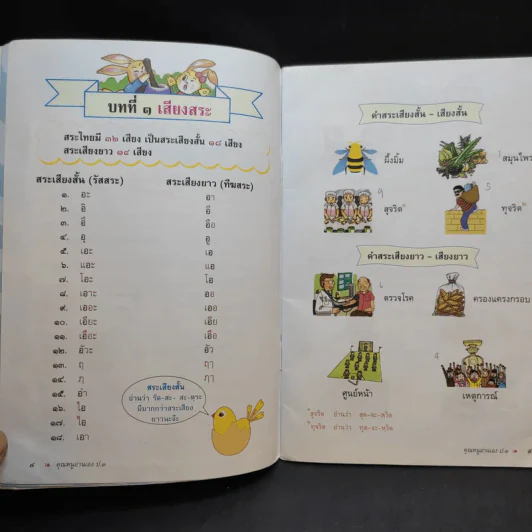 บทที่ ๑ เสียงสระ
สระไทยมี ๓๒ เสียง เป็นสระเสียงสั้น ๑๘ เสียง
สระเสียงยาว ๑๔ เสียง
สระเสียงสั้น (รัสสระ) สระเสียงยาว (ทีฆสระ)
๑. อะ อา
๒. อิ อี
๓. อึ อือ
๔. อุ อู
๕. เอะ เอ
๖. แอะ แอ
๗. โอะ โอ
๘. เอาะ ออ
๙. เออะ เออ
๑๐. เอียะ เอีย
๑๑. เอือะ เอือ
๑๒. อัวะ อัว
๑๓. ฤ ฤๅ
๑๔. ฦ ฦๅ
๑๕. อำ
๑๖. ไอ
๑๗. ใอ
๑๘. เอา
สระเสียงสั้น
อ่านว่า รัด-สะ- สะ-หระ
มีมากกว่าสระเสียง
ยาวนะจ๊ะ
๔ คุณหนูอ่านเอง ป.๑
คำสระเสียงสั้น - เสียงสั้น
ผึ้งมิ้ม สมุนไพร
สุจริต ทุจริต
คำสระเสียงยาว - เสียงยาว
ตรวจโรค ครองแครงกรอบ
ศูนย์หน้า เหตุการณ์
สุจริต อ่านว่า สุด-จะ-หริด
ทุจริต อ่านว่า ทุด-จะ-หริด
คุณหนูอ่านเอง ป.๑ ๕